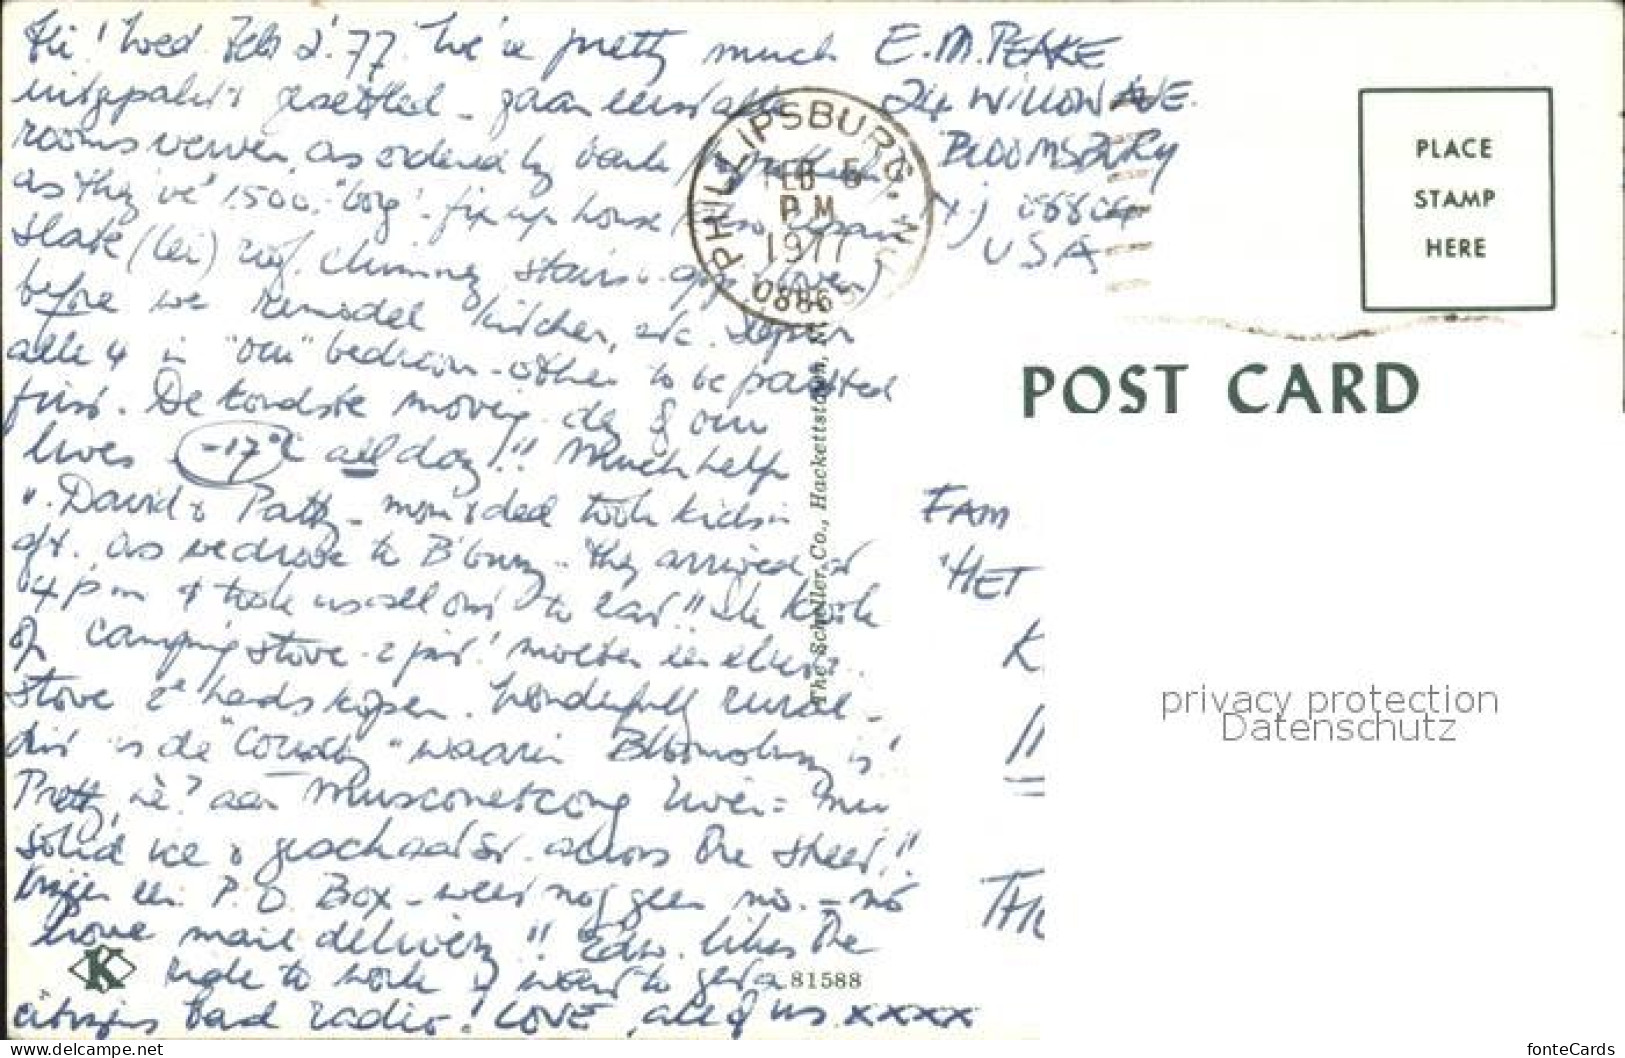 Hi! Wed Feb 2. '77. We're pretty much
uitgepakt & gesettled - gaan eerst alle
rooms verven, as ordered by bank
as they've 1500. "borg". fix up house
slate (lei) roof. chimney stairs
before we remodel kitchen, etc. Slapen
alle 4 in "our" bedroom - other to be painted
first. De koudste moving day of our
lives -17°C all day!! Much help
v. David & Patty - mom & dad took kids
as we drove to B'bury - they arrived at
4 pm & took us all out to eat!! Ik kook
op camping stove - 2 pits! moeten een electr.
stove 2e hands kopen. Wonderfully rural -
dit is de "County" waarin Bloomsbury is!
Pretty, hè? aan Musconetcong River = nu
solid ice & geschaatst across the street!!
krijgen een P.O. Box - weet nog geen no. - no
home mail delivery!! Edw. likes the
ride to work & want to get a
citizens band radio! LOVE, all of us xxxx
E.M. PEAKE
24 WILLOW AVE.
BLOOMSBURY
N.J 08804
USA
PHILLIPSBURG, NJ
FEB 5
PM
1977
0886
PLACE
STAMP
HERE
POST CARD
The Scheller Co., Hackettstown, N.
FAM
'HET
K
TH
privacy protection
Datenschutz
K
81588
www.delcampe.net
fonteCards